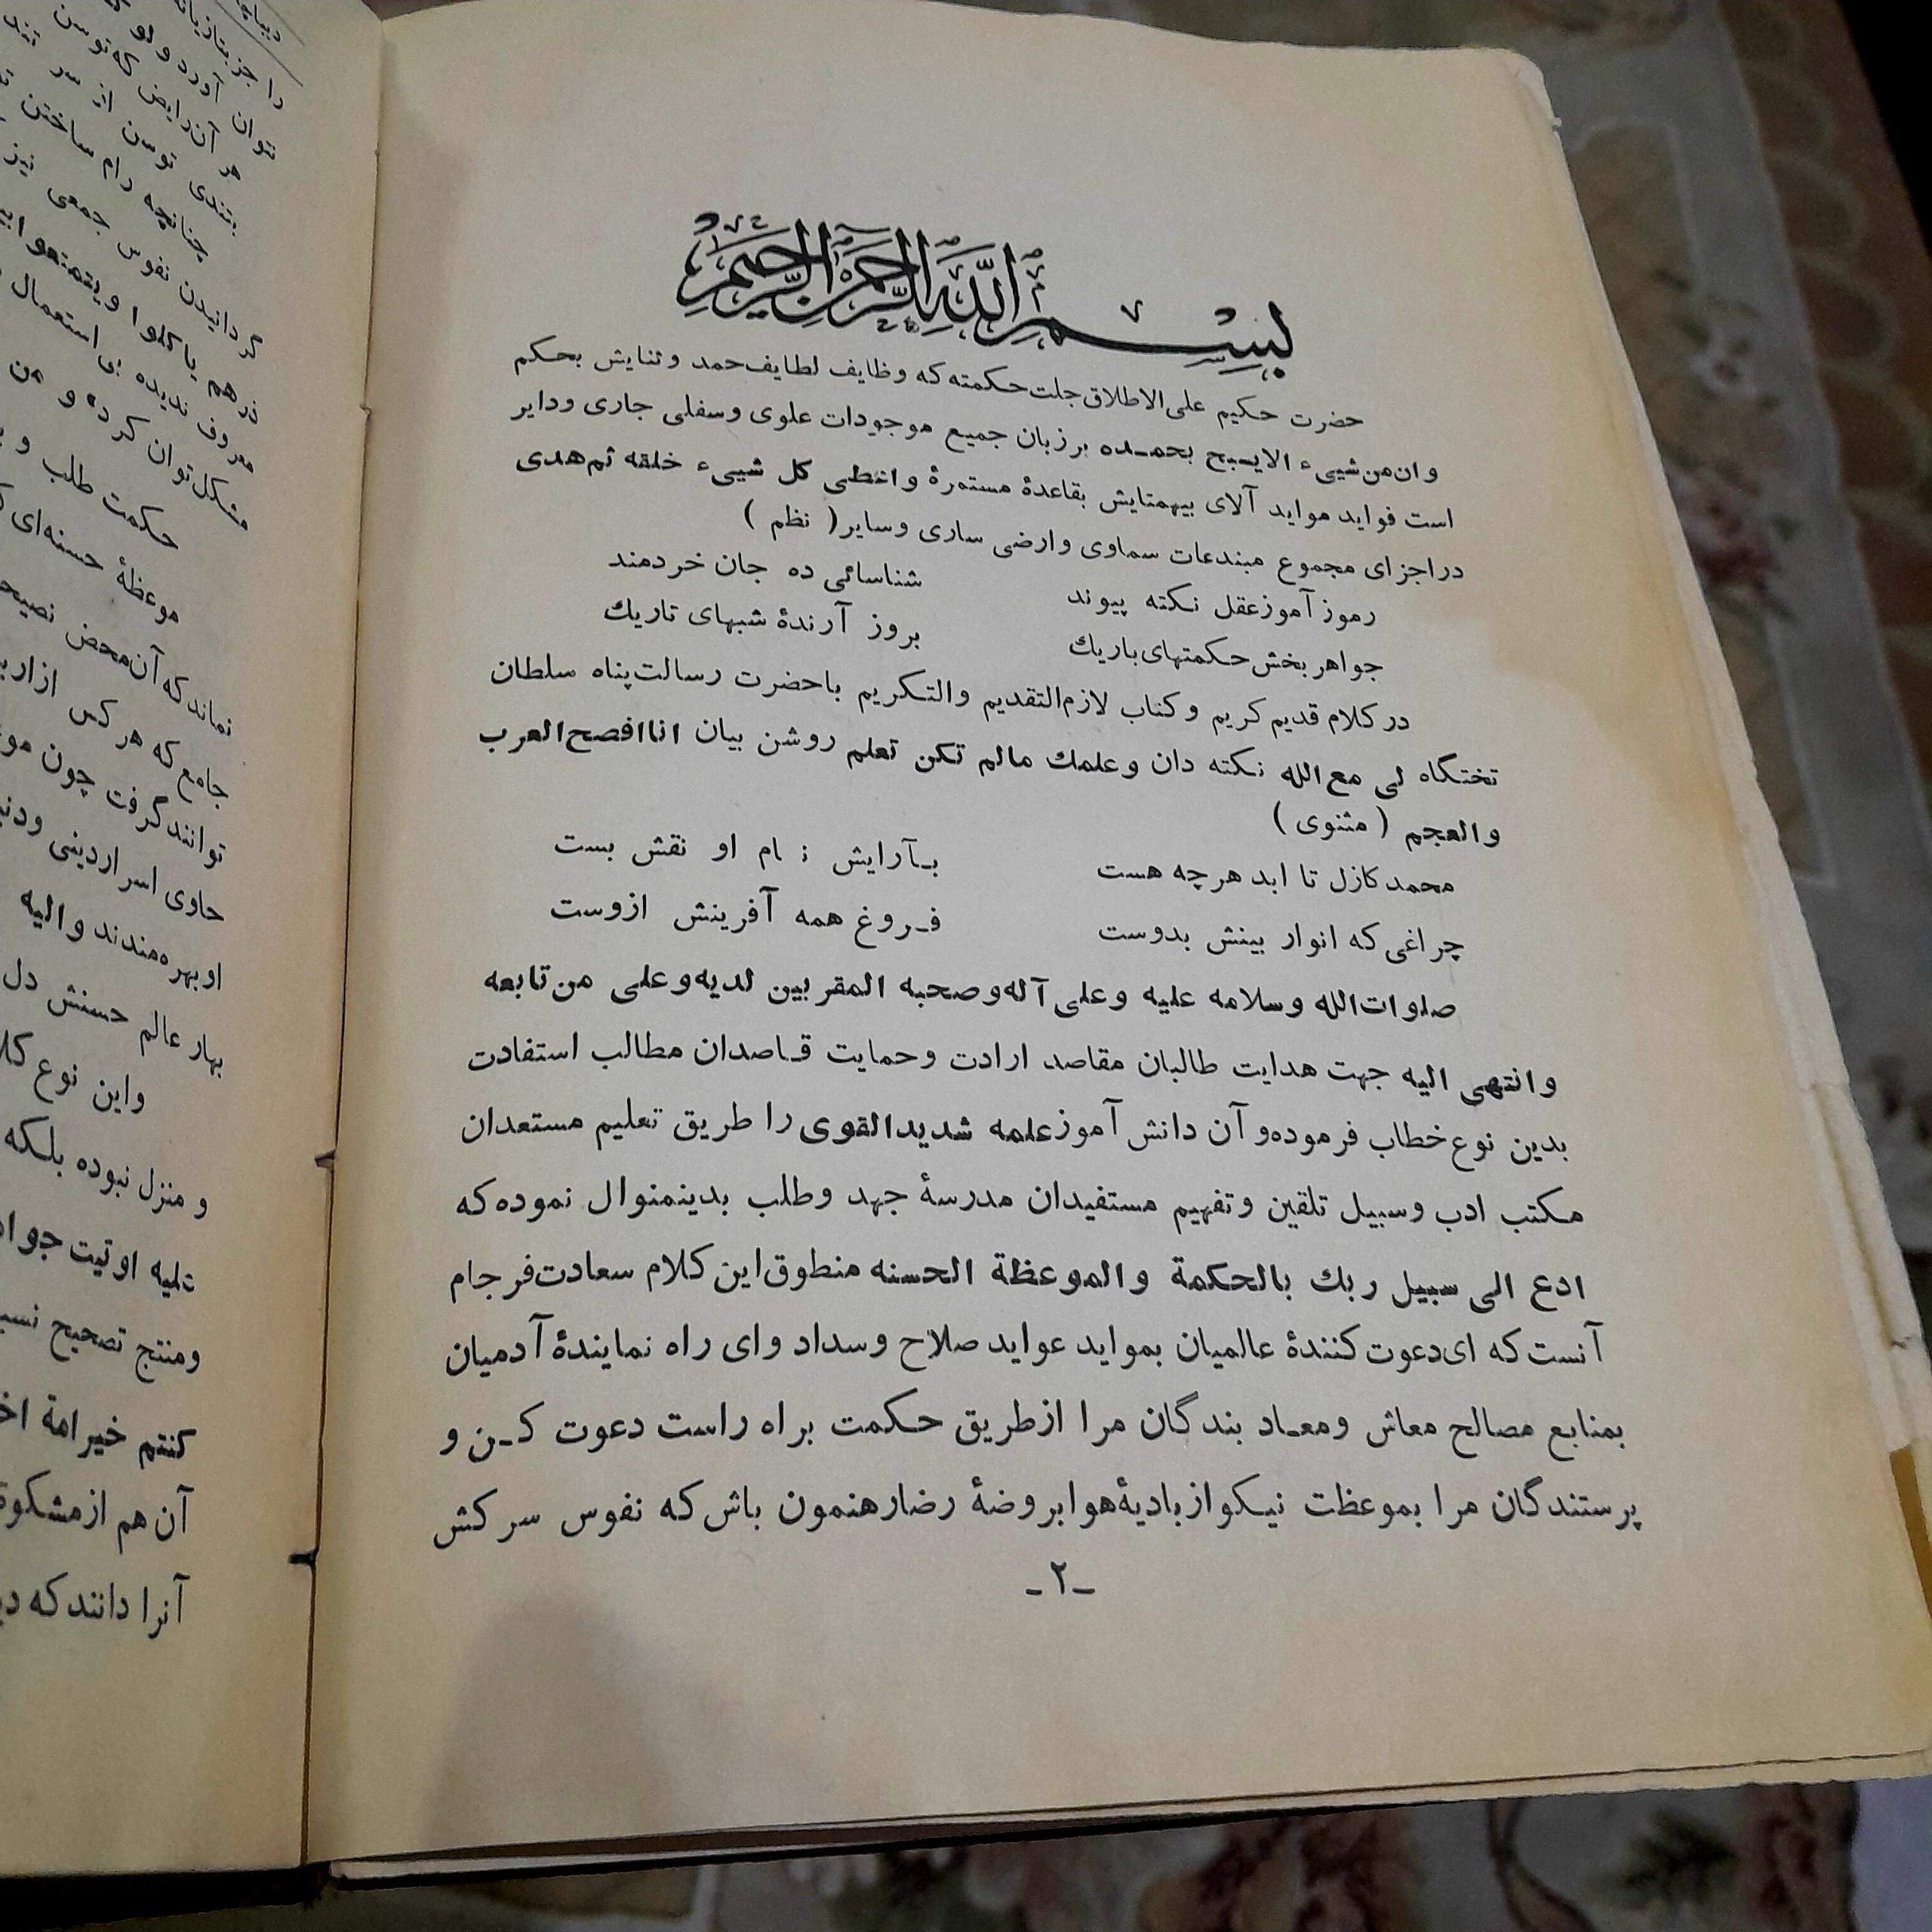 بسم الله الرحمن الرحیم
حضرت حکیم علی‌الاطلاق جلت‌حکمته که وظایف لطایف حمد وثنایش بحکم
وان‌من‌شییء الایسبح بحمده برزبان جمیع موجودات علوی وسفلی جاری ودایر
است فواید مواید آلای بیهمتایش بقاعدهٔ مستمرهٔ واعطی کل شییء خلقه ثم‌هدی
دراجزای مجموع مبدعات سماوی وارضی ساری وسایر ( نظم )
رموز آموز عقل نکته پیوند شناسائی ده جان خردمند
جواهر بخش حکمتهای باریك بروز آرندهٔ شبهای تاریك
در کلام قدیم کریم وکتاب لازم‌التقدیم والتکریم باحضرت رسالت‌پناه سلطان
تختگاه لی مع‌الله نکته دان وعلمك مالم تکن تعلم روشن بیان اناافصح‌العرب
والعجم ( مثنوی )
محمد کازل تا ابد هرچه هست بآرایش نام او نقش بست
چراغی که انوار بینش بدوست فروغ همه آفرینش ازوست
صلوات‌الله وسلامه علیه وعلی آله‌وصحبه المقربین لدیه‌وعلی من‌تابعه
وانتهی الیه جهت هدایت طالبان مقاصد ارادت وحمایت قاصدان مطالب استفادت
بدین نوع خطاب فرموده‌و آن دانش آموز علمه شدیدالقوی را طریق تعلیم مستعدان
مکتب ادب وسبیل تلقین وتفهیم مستفیدان مدرسهٔ جهد وطلب بدینمنوال نموده که
ادع الی سبیل ربك بالحکمة والموعظة الحسنه منطوق این کلام سعادت‌فرجام
آنست که ای‌دعوت‌کنندهٔ عالمیان بمواید عواید صلاح وسداد وای راه نمایندهٔ آدمیان
بمنابع مصالح معاش ومعاد بندگان مرا ازطریق حکمت براه راست دعوت کن و
پرستندگان مرا بموعظت نیکو از بادیهٔ هوا بروضهٔ رضا رهنمون باش که نفوس سرکش
-۲-
دا جز بتازیانه
نتوان آورد و لو
هر آن‌رایض که توسن
بتندی توسن از سر
چنانچه رام ساختن
گردانیدن نفوس جمعی نیز
ذرهم یاکلوا ویتمتعوا
معروف ندیده بی استعمال
مشکل توان کرد و
حکمت طلب و
موعظهٔ حسنه‌ای
نماند که آن‌محض
جامع که هر کس از
توانند گرفت چون
حاوی اسرار دینی
او بهره‌مندند والیه
بهار عالم حسنش دل
واین نوع
و منزل نبوده بلکه
علیه اوتیت
ومنتج تصحیح
کنتم خیر امة
آن هم از مشکوة
آنرا دانند که